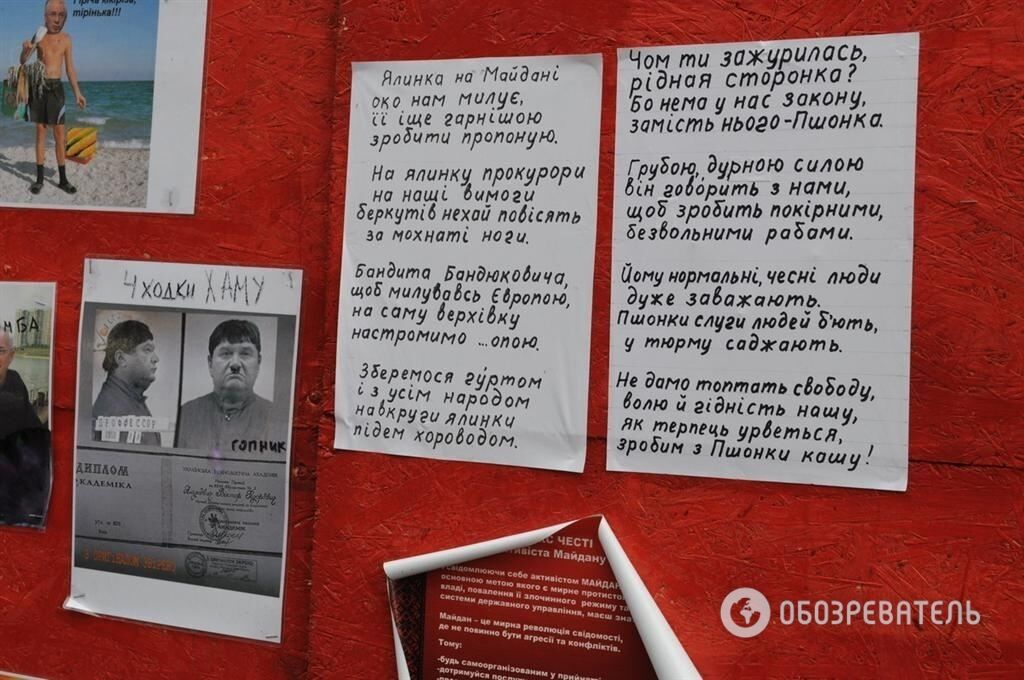 тірінька!!!
Ялинка на Майдані
око нам милує,
її іще гарнішою
зробити пропоную.
На ялинку прокурори
на нащі вимоги
беркутів нехай повісять
за мохнаті ноги.
Бандита Бандюковича,
щоб милувавсь Європою,
на саму верхівку
настромимо ...опою.
Зберемося гуртом
і з усім народом
навкруги ялинки
підем хороводом.
Чом ти зажурилась,
рідная сторонка?
Бо нема у нас закону,
замість нього-Пшонка.
Грубою, дурною силою
він говорить з нами,
щоб зробить покірними,
безвольними рабами.
Йому нормальні, чесні люди
дуже заважають.
Пшонки слуги людей б'ють,
у тюрму саджають.
Не дамо топтать свободу,
волю й гідність нашу,
як терпець урветься,
зробим з Пшонки кашу!
4 ходки ХАМУ
ПРОФФЕССОР
гопник
ДИПЛОМ
АКАДЕМІКА
УКРАЇНСЬКА АКАДЕМІЯ
З ОРИГІНАЛОМ ЗВІРЕНО
МБА
КС ЧЕСТІ
тивіста Майдану
свідомлюючи себе активістом МАЙДАН
основною метою якого є мирне протистоя
владі, повалення її злочинного режиму та
системи державного управління, маєш зна
Майдан – це мирна революція свідомості,
де не повинно бути агресії та конфліктів.
Тому:
-будь самоорганізованим у прийнятт
-дотримуйся послуш
ОБОЗРЕВАТЕЛЬ